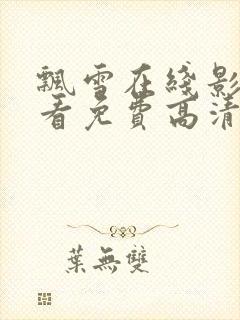 飄雪在綫影
看免費高清
葉無雙